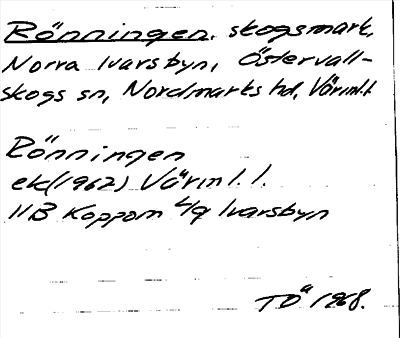 Rönningen, skogsmark,
Norra Ivarsbyn, Östervall-
skogs sn, Nordmarks hd, Värml.l
Rönningen
ek (1962) Värml.l.
11B Koppom 4/9 Ivarsbyn
TÖ 1968.